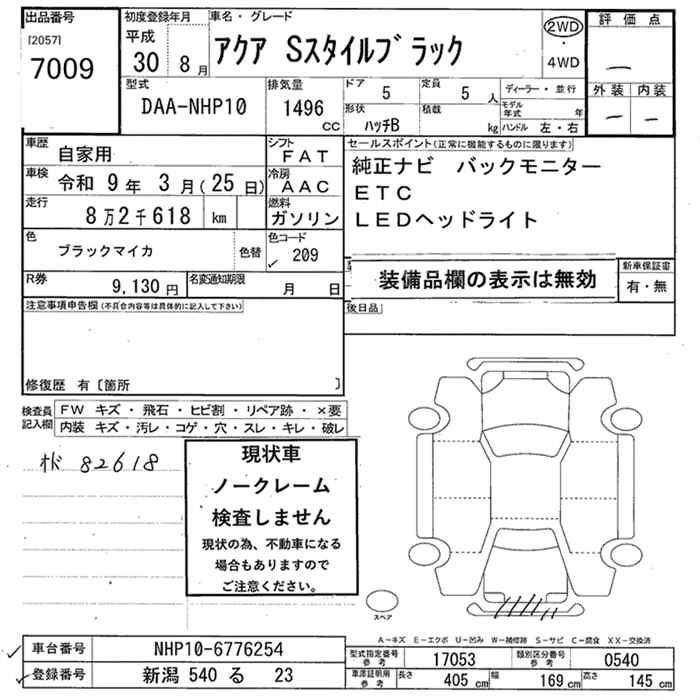 出品番号
[2057]
7009
初度登録年月
平成
30 8月
車名・グレード
アクア Sスタイルブラック
2WD
・
4WD
評価点
―
外装 内装
― ―
型式
DAA-NHP10
排気量
1496
CC
ドア 5
定員 5 人
形状
ハッチB
積載
kg
ディーラー・並行
モデル年式 年
ハンドル 左・右
車歴
自家用
シフト
FAT
車検
令和 9年 3月(25日)
冷房
AAC
走行
8万2千618 km
燃料
ガソリン
色
ブラックマイカ
色替
色コード
✓ 209
R券
9,130 円
名変通知期限
月 日
セールスポイント(正常に機能するものに限ります)
純正ナビ バックモニター
ETC
LEDヘッドライト
装備品欄の表示は無効
新車保証書
有・無
後日品
注意事項申告欄(不具合内容等は具体的に記入して下さい)
修復歴 有〔箇所 〕
検査員
記入欄
FW キズ・飛石・ヒビ割・リペア跡・×要
内装 キズ・汚レ・コゲ・穴・スレ・キレ・破レ
オド 82618
現状車
ノークレーム
検査しません
現状の為、不動車になる
場合もありますので
ご注意ください。
スペア
A-キズ E-エクボ U-凹み W-補修跡 S-サビ C-腐食 XX-交換済
✓ 車台番号 NHP10-6776254
✓ 登録番号 新潟 540 る 23
型式指定番号
参考
17053
類別区分番号
参考
0540
車庫証明用
参考
長さ 405 cm 幅 169 cm 高さ 145 cm